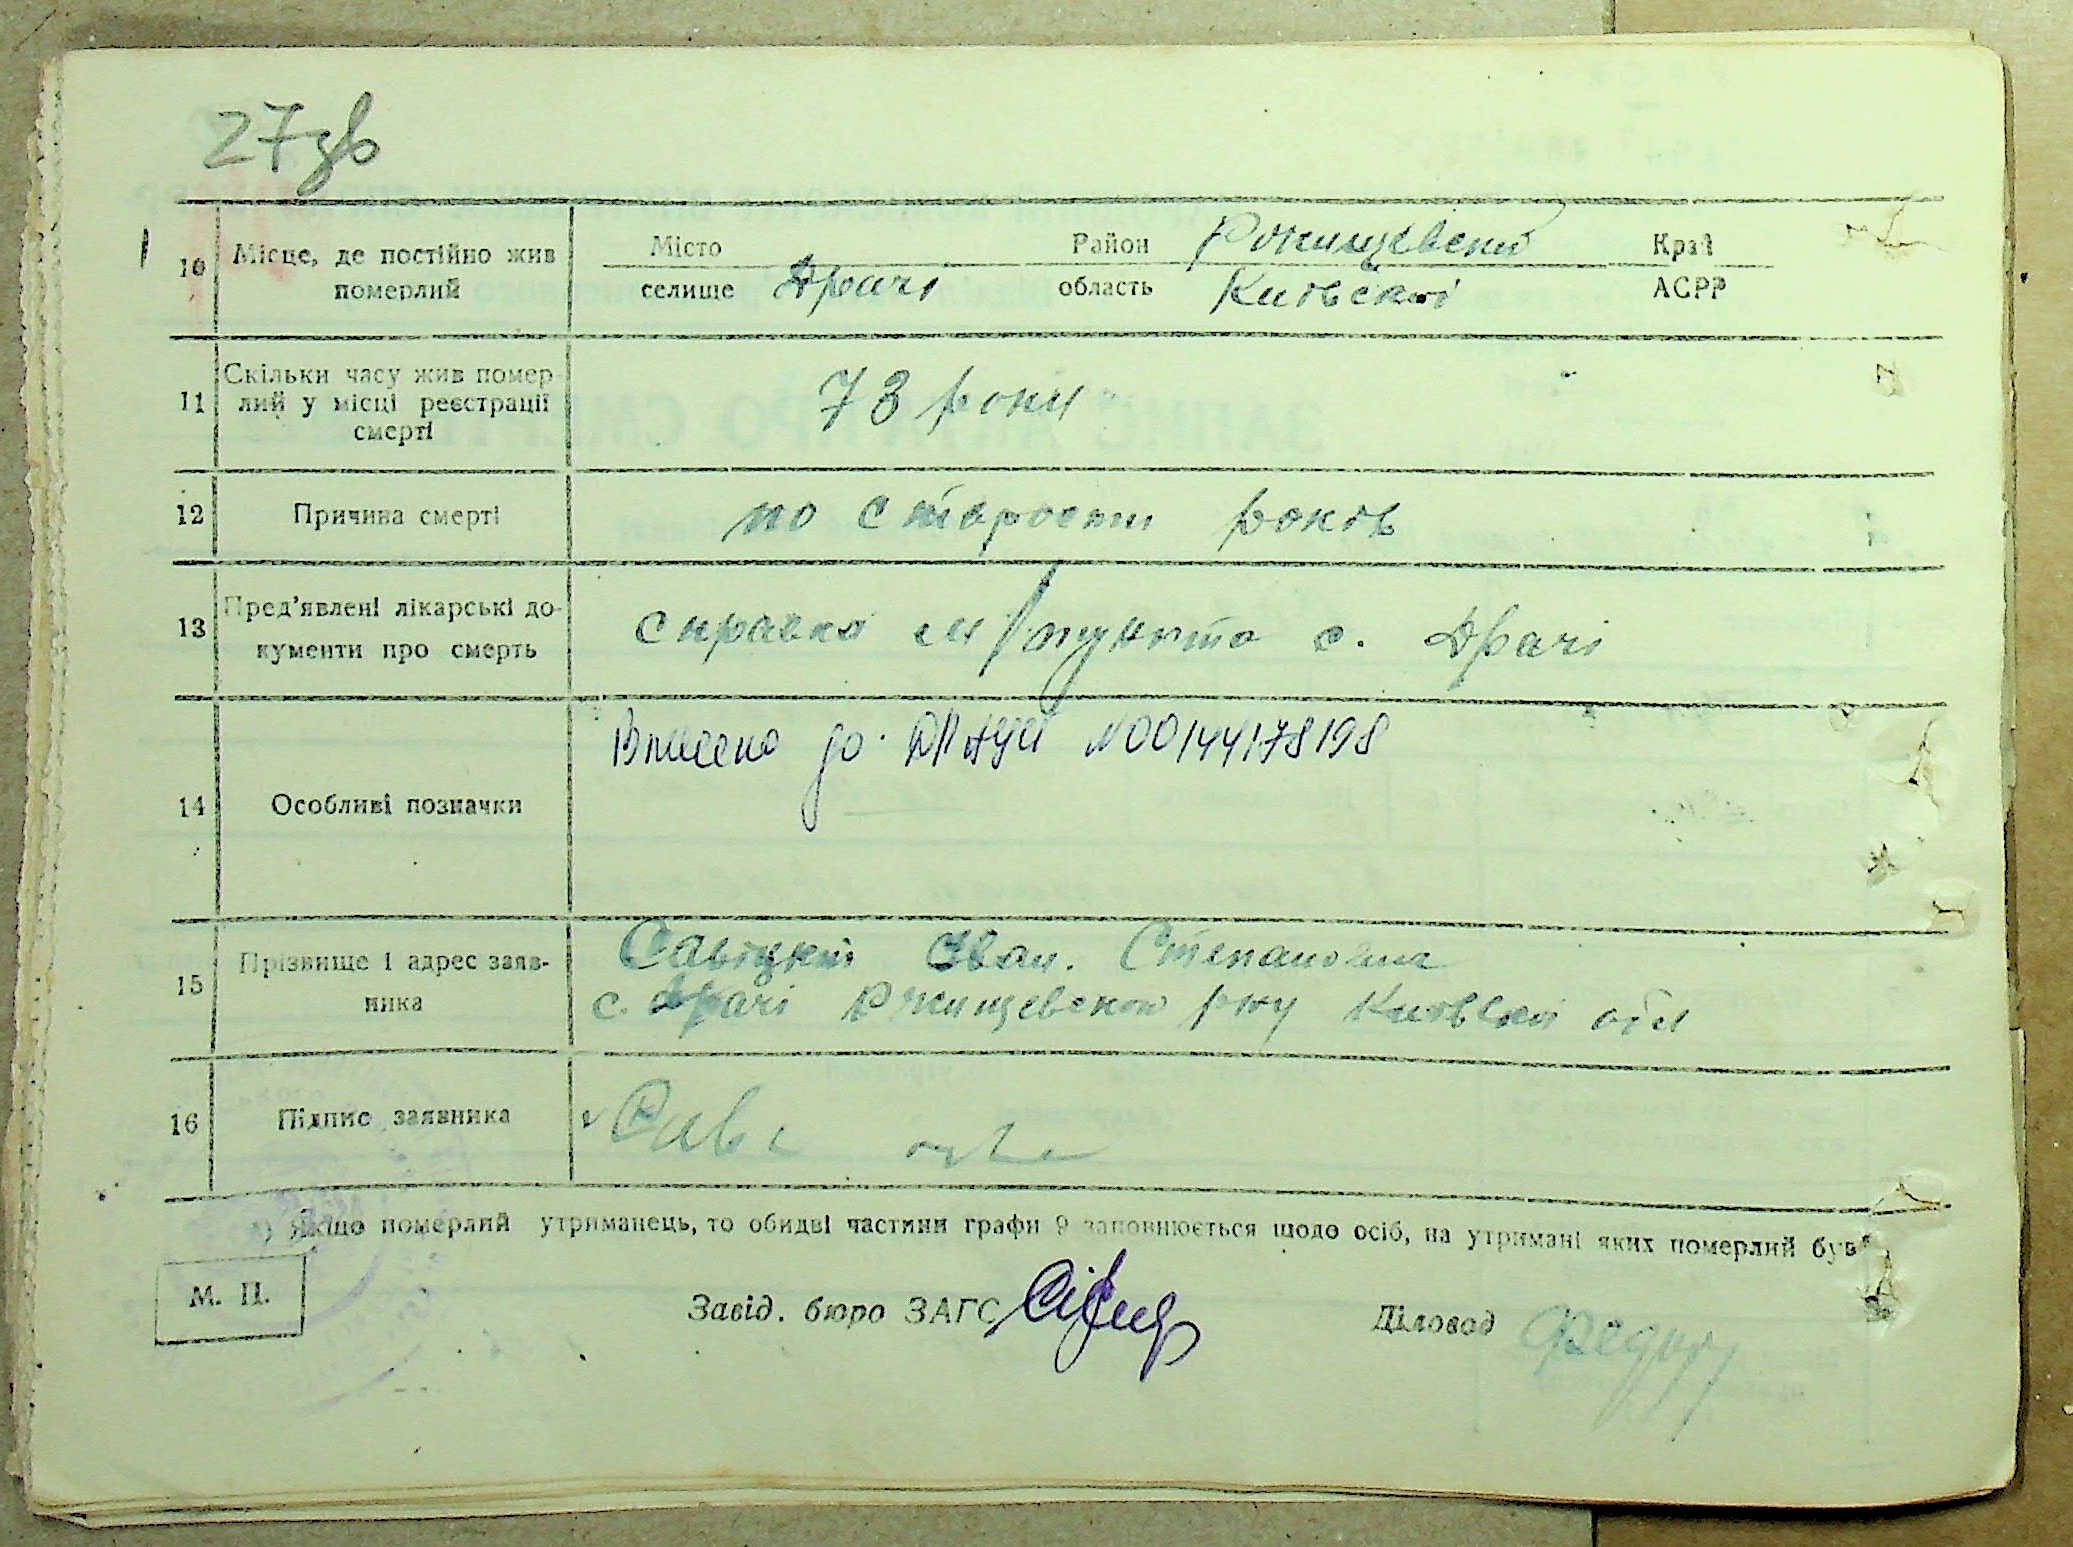 27зв
10 Місце, де постійно жив Місто Район Ржищевськи Край
померлий селище Драчі область Київскої АСРР
11 Скільки часу жив помер-
лий у місці реєстрації
смерті
73 роки
12 Причина смерті по старости років
13 Пред'явлені лікарські до-
кументи про смерть
справка м/пункта с. Драчі
14 Особливі позначки
Внесено до ДРАЦС N00144178198
15 Прізвище і адрес заяв-
ника
Савіцкий Іван. Степанович
с. Драчі Ржищевского р-ну Київскої обл
16 Підпис заявника
*) Якщо померлий утриманець, то обидві частини графи 9 заповнюється щодо осіб, на утримані яких померлий був
М. П.
Завід. бюро ЗАГС Діловод